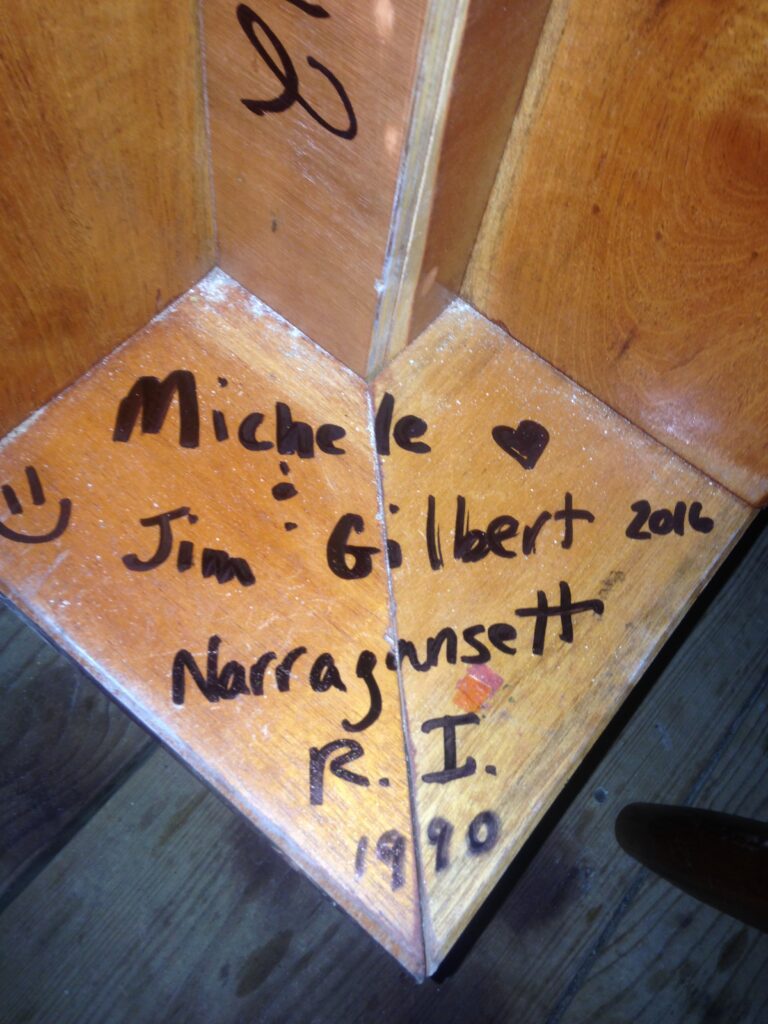 Michelle ♥
&
Jim Gilbert 2016
Narragansett
R. I.
1990